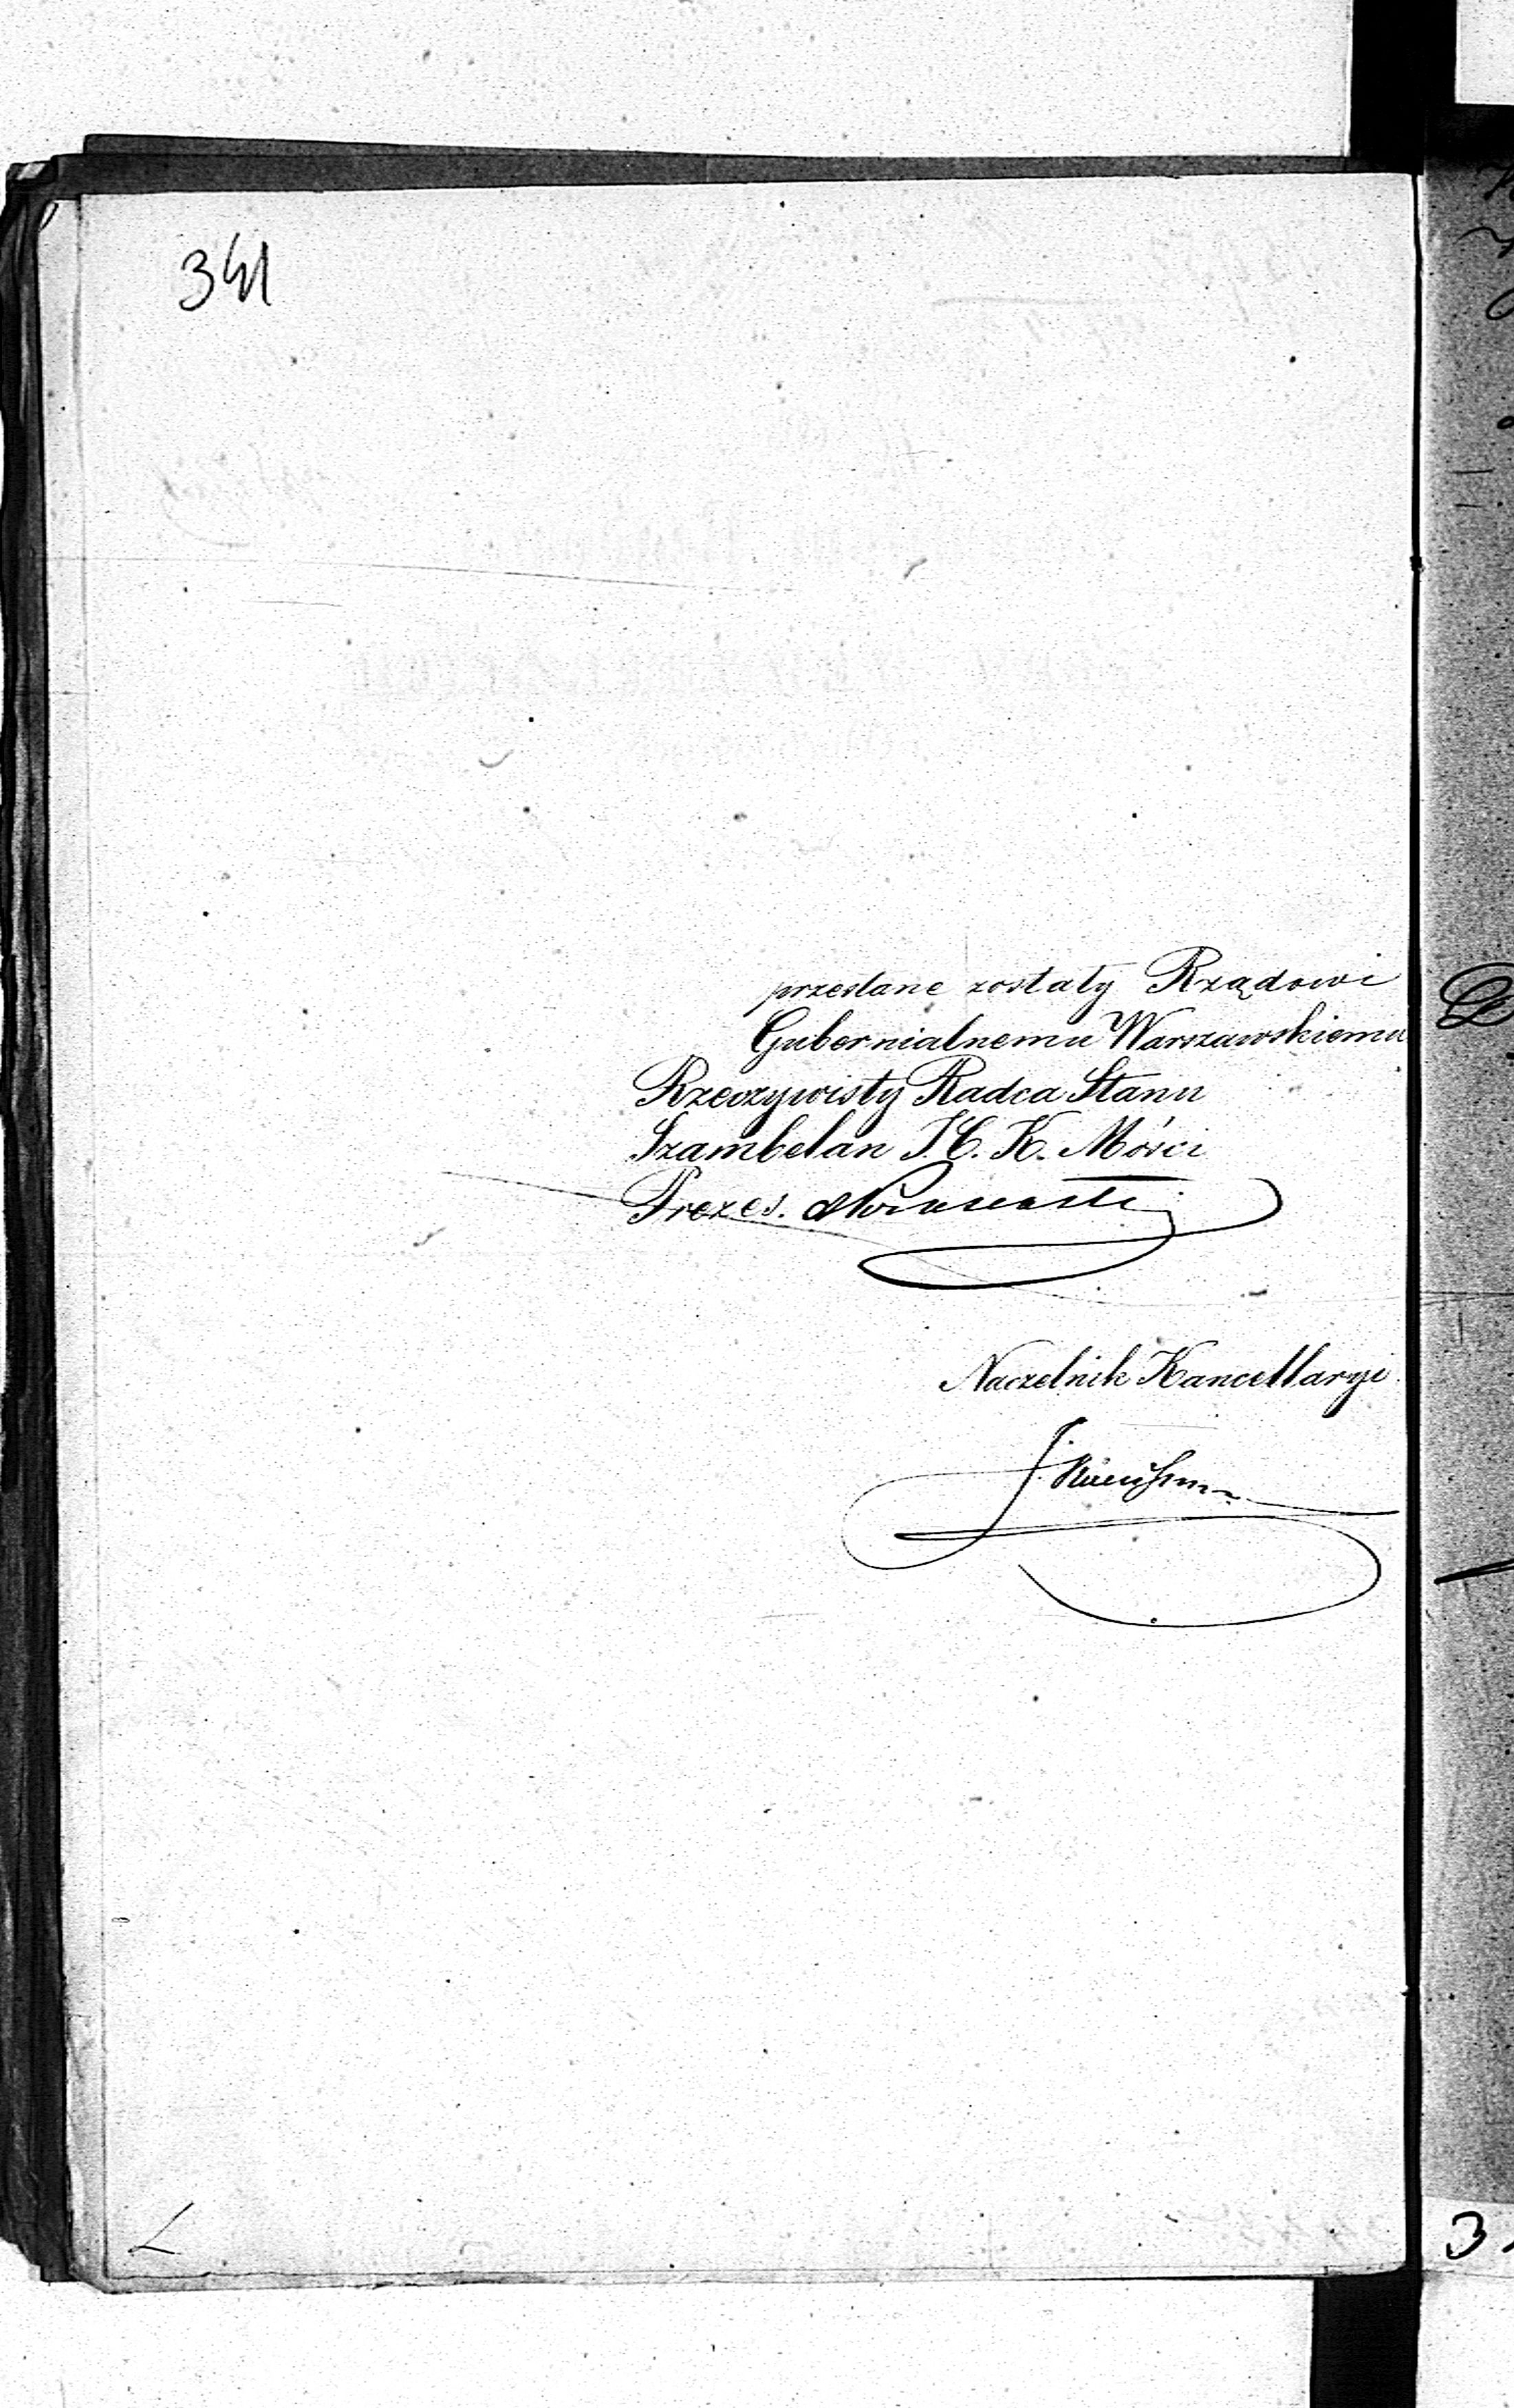 341
przesłane zostały Rządowi
Gubernialnemu Warszawskiemu
Rzeczywisty Radca Stanu
Szambelan J. C. K. Mości
Prezes.
Naczelnik Kancellaryi